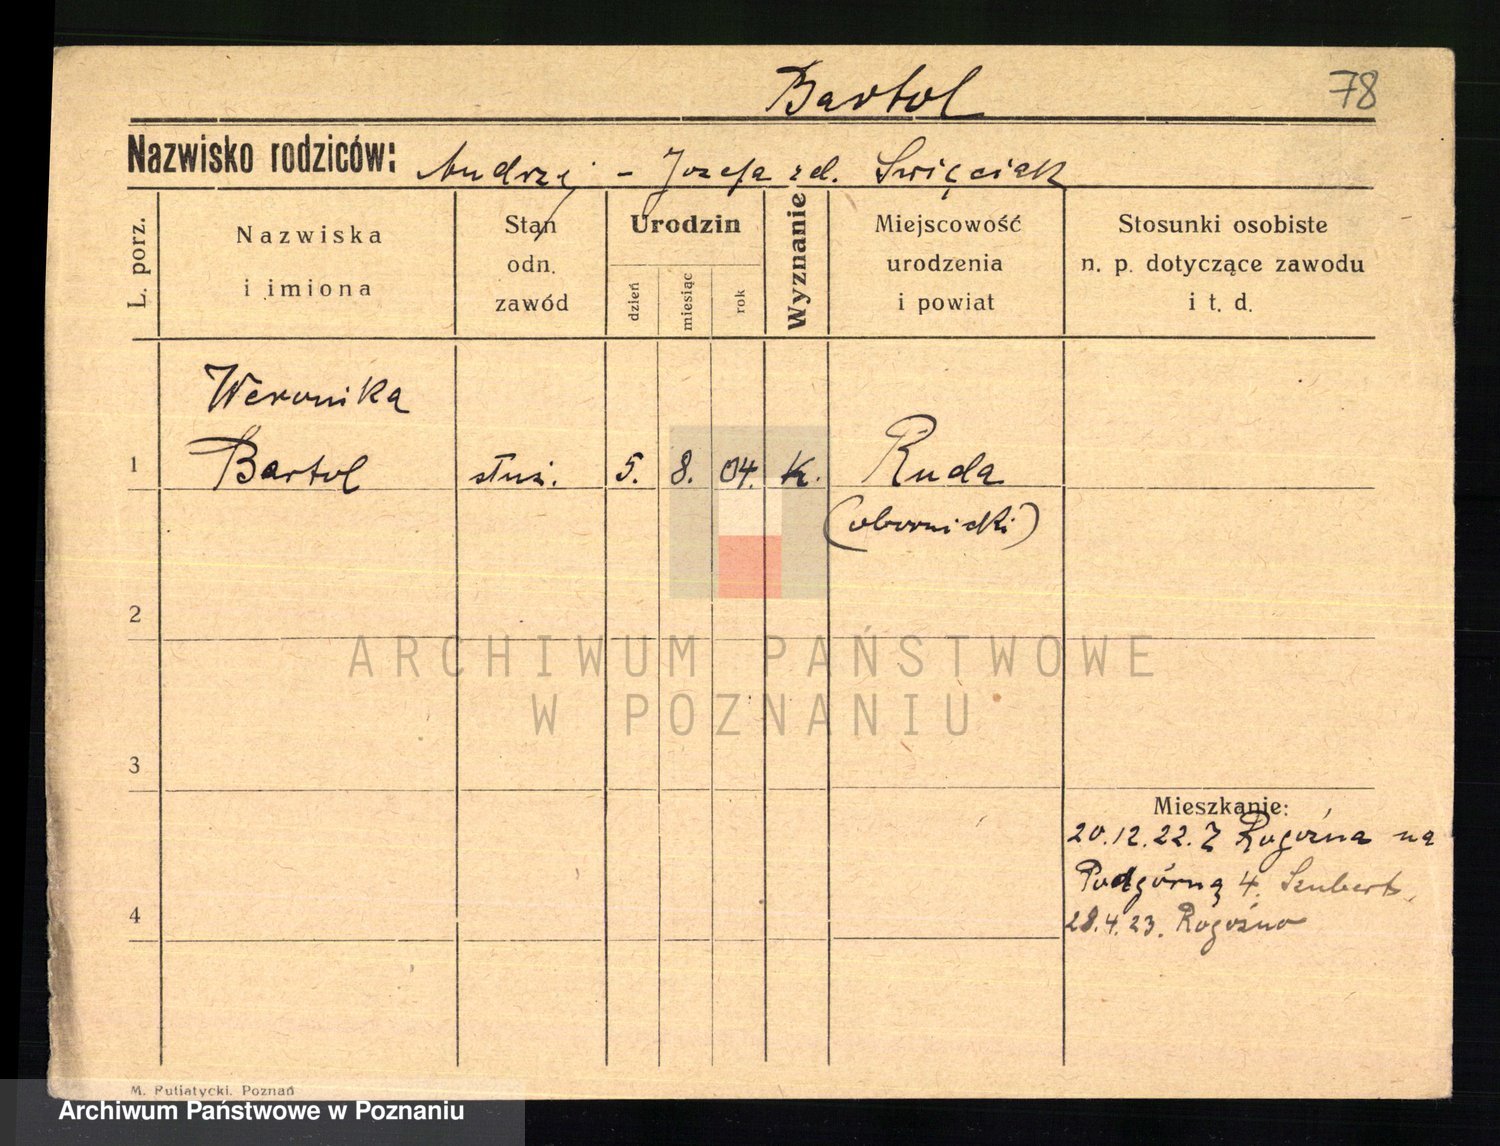 Bartol
78
Nazwisko rodziców: Andrzej - Józefa zd. Święciak
L. porz.
Nazwiska
i imiona
Stan
odn.
zawód
Urodzin
dzień
miesiąc
rok
Wyznanie
Miejscowość
urodzenia
i powiat
Stosunki osobiste
n. p. dotyczące zawodu
i t. d.
Weronika
1 Bartol służ. 5. 8. 04. K. Ruda
(obornicki)
2
ARCHIWUM PAŃSTWOWE
W POZNANIU
3
Mieszkanie:
20.12.22. Z Rogoźna na
Podgórną 4. Szubert.
4
28.4.23. Rogoźno
M. Putiatycki. Poznań
Archiwum Państwowe w Poznaniu